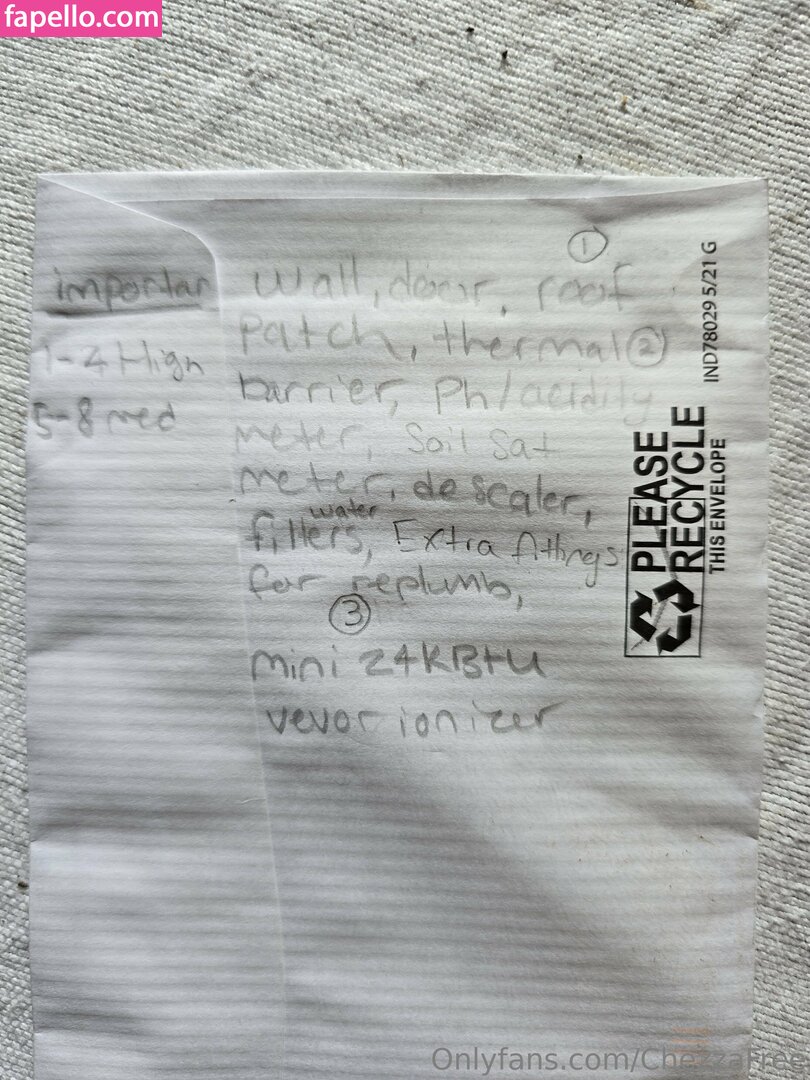 fapello.com
important
1-4 High
5-8 med
①
Wall, door, roof
Patch, thermal ②
barrier, Ph/acidity
meter, Soil Sat
meter, descaler,
water
fillers, Extra fittings
for replumb,
③
mini 24KBtU
vevor ionizer
IND78029 5/21 G
PLEASE
RECYCLE
THIS ENVELOPE
Onlyfans.com/ChezzaFree